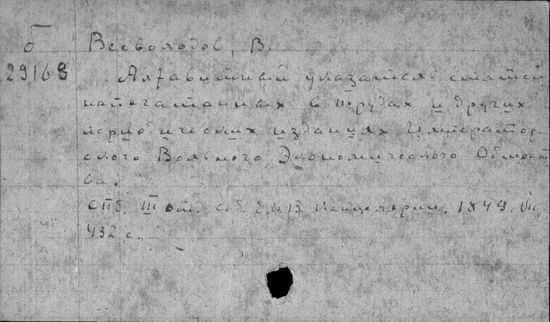 б Всеволодов, В.
29168 Алфавитный указатель статей,
напечатанных в трудах и других
периодических изданиях Император-
ского Вольного Экономического Общест-
ва.
СПб, III отд. соб. Е.И.В. Канцелярии, 1849, VII,
432 с.